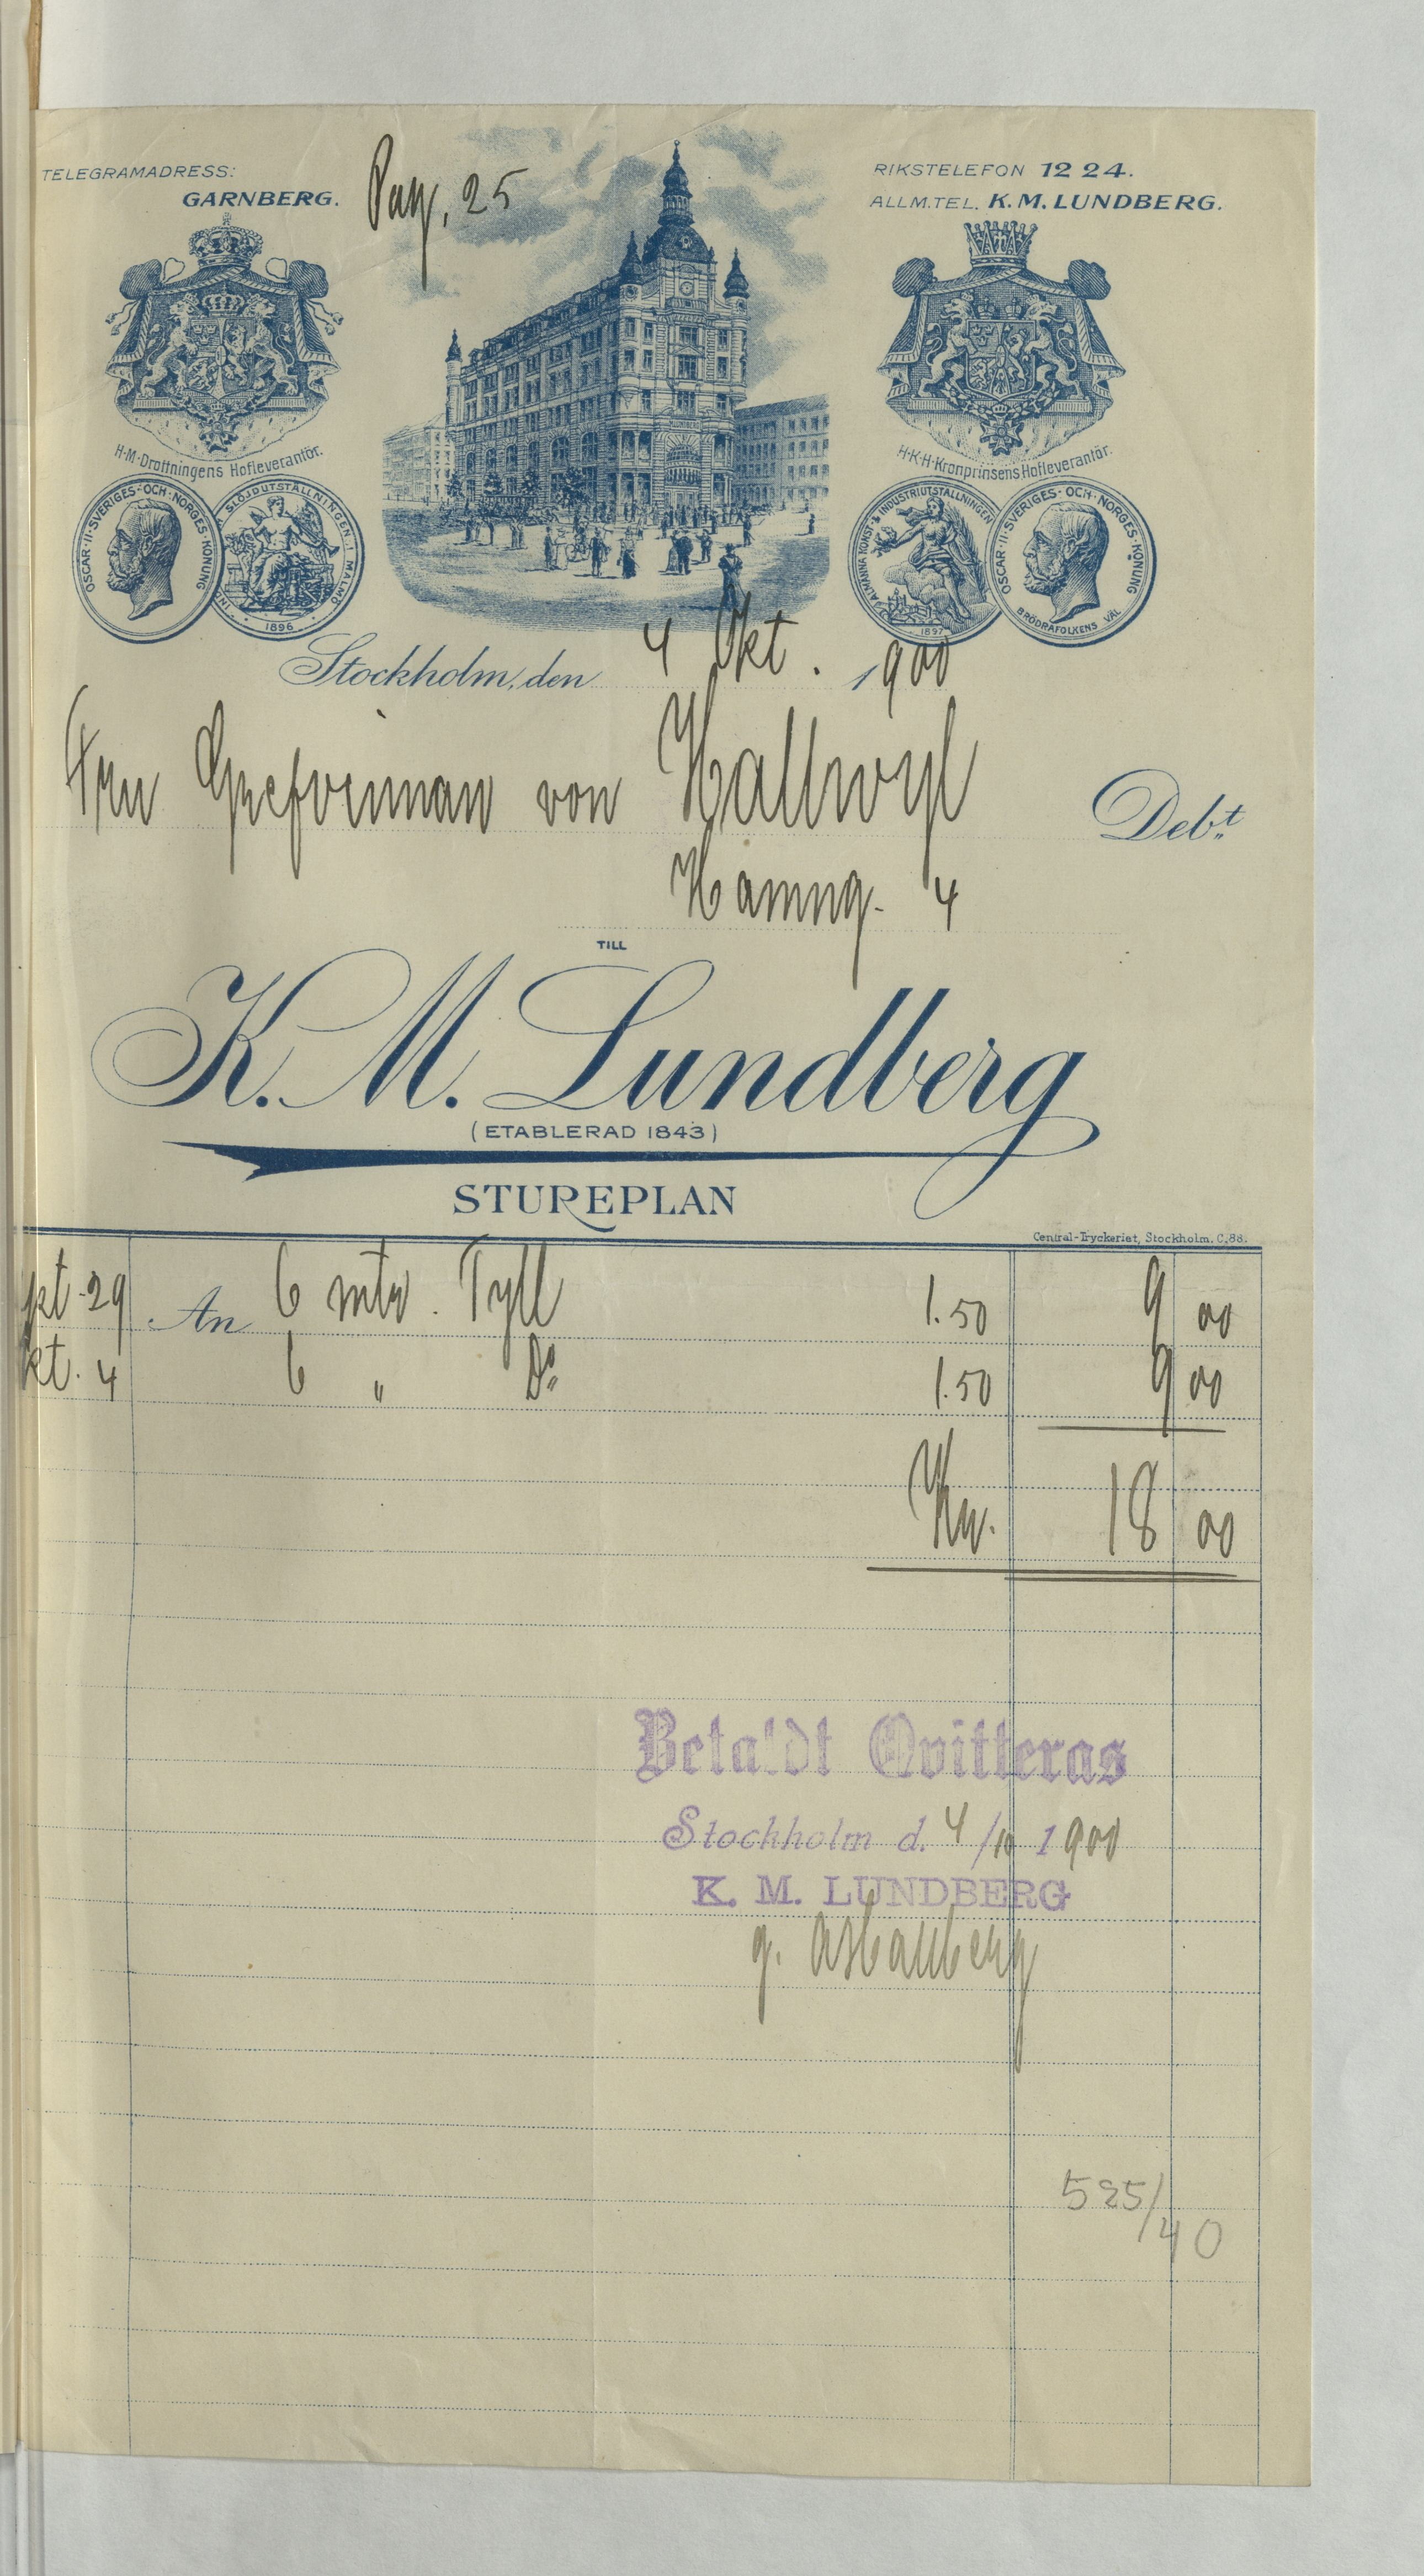 TELEGRAMADRESS:
GARNBERG.
Pag. 25
RIKSTELEFON 12 24.
ALLM.TEL. K. M. LUNDBERG.
H·M·Drottningens Hofleverantör.
H·K·H·Kronprinsens Hofleverantör.
OSCAR·II·SVERIGES·OCH·NORGES·KONUNG
SLÖJDUTSTÄLLNINGEN·I·MALMÖ
1896
ALLMÄNNA KONST- & INDUSTRIUTSTÄLLNINGEN
1897
OSCAR·II·SVERIGES·OCH·NORGES·KONUNG
BRÖDRAFOLKENS VÄL
Stockholm, den 4 Okt. 1900
Fru Grefvinnan von Hallwyl
Debt
Hamng. 4
TILL
K. M. Lundberg
(ETABLERAD 1843)
STUREPLAN
Central-Tryckeriet, Stockholm. C.88.
pt 29 An 6 mtr. Tyll 1.50 9 00
kt. 4 6 " Do 1.50 9 00
Kr. 18 00
Betaldt Qvitteras
Stockholm d. 4/10 1900
K. M. LUNDBERG
525/40